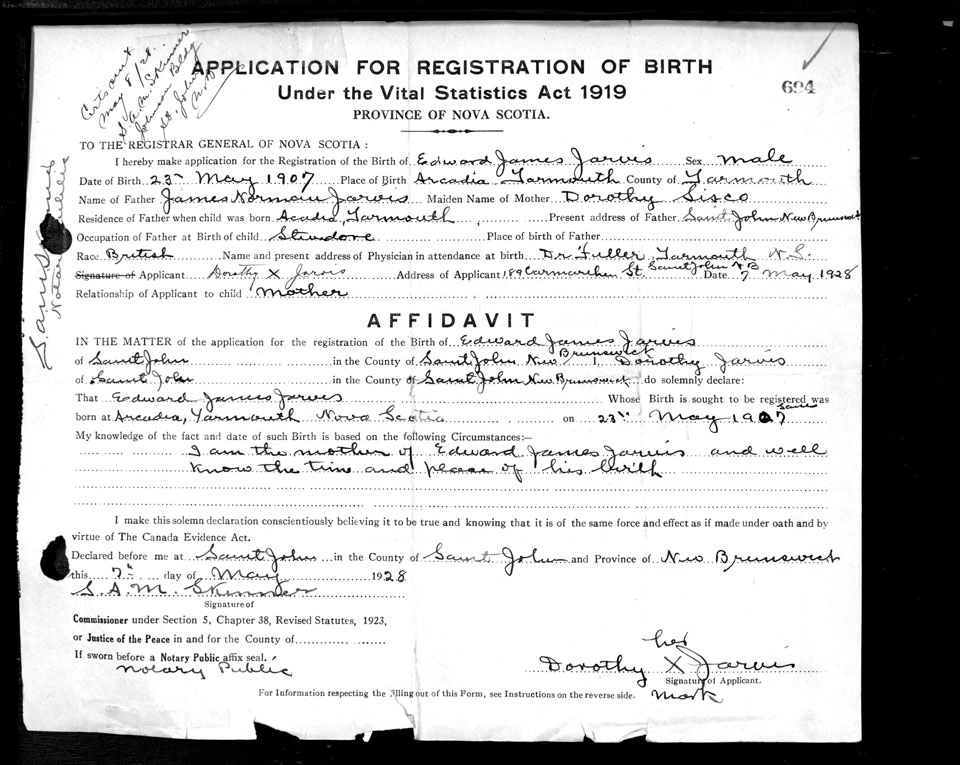 Certs out
May 8/28.
S. A. M. Skinner
Johnson Bldg
St. John,
N.B
694
APPLICATION FOR REGISTRATION OF BIRTH
Under the Vital Statistics Act 1919
PROVINCE OF NOVA SCOTIA.
TO THE REGISTRAR GENERAL OF NOVA SCOTIA :
I hereby make application for the Registration of the Birth of Edward James Jarvis Sex Male
Date of Birth 23rd May 1907 Place of Birth Arcadia Yarmouth County of Yarmouth
Name of Father James Norman Jarvis Maiden Name of Mother Dorothy Sisco
Residence of Father when child was born Acadia, Yarmouth Present address of Father Saint John New Brunswick
Occupation of Father at Birth of child Stevedore Place of birth of Father
Race British Name and present address of Physician in attendance at birth Dr. Fuller, Yarmouth N.S.
Signature of Applicant Dorothy X Jarvis Address of Applicant 189 Carmarthen St. Saint John N B Date 7 May 1928
Relationship of Applicant to child Mother
S. A. M. Skinner
Notary Public
AFFIDAVIT
IN THE MATTER of the application for the registration of the Birth of Edward James Jarvis
of Saint John in the County of Saint John New Brunswick I, Dorothy Jarvis
of Saint John in the County of Saint John New Brunswick do solemnly declare:
That Edward James Jarvis Whose Birth is sought to be registered was
born at Arcadia, Yarmouth Nova Scotia on 23rd May 1907
My knowledge of the fact and date of such Birth is based on the following Circumstances:—
I am the mother of Edward James Jarvis and well
know the time and place of his birth
I make this solemn declaration conscientiously believing it to be true and knowing that it is of the same force and effect as if made under oath and by
virtue of The Canada Evidence Act.
Declared before me at Saint John in the County of Saint John and Province of New Brunswick
this 7th day of May 1928
S. A. M. Skinner
Signature of
Commissioner under Section 5, Chapter 38, Revised Statutes, 1923,
or Justice of the Peace in and for the County of
If sworn before a Notary Public affix seal.
Notary Public
her
Dorothy X Jarvis
Signature of Applicant.
Mark
For Information respecting the filling out of this Form, see Instructions on the reverse side.